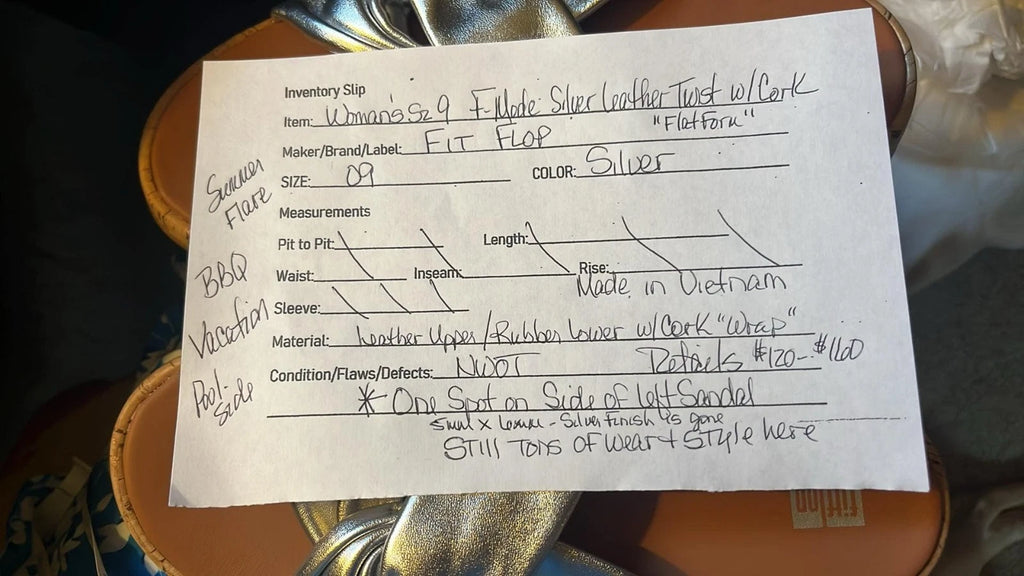 Inventory Slip
Item: Woman's Sz 9 F-Mode Silver Leather Twist w/Cork
"Flatform"
Maker/Brand/Label: FIT FLOP
SIZE: 09 COLOR: Silver
Summer
Flare
Measurements
Pit to Pit: Length:
Waist: Inseam: Rise:
BBQ
Made in Vietnam
Sleeve:
Vacation
Material: Leather Upper/Rubber Lower w/Cork "Wrap"
Condition/Flaws/Defects: NWOT Retails $120-$160
Pool-
side
* One Spot on Side of left Sandal
- Silver Finish is gone
Still Tons of Wear + Style here
fitflop